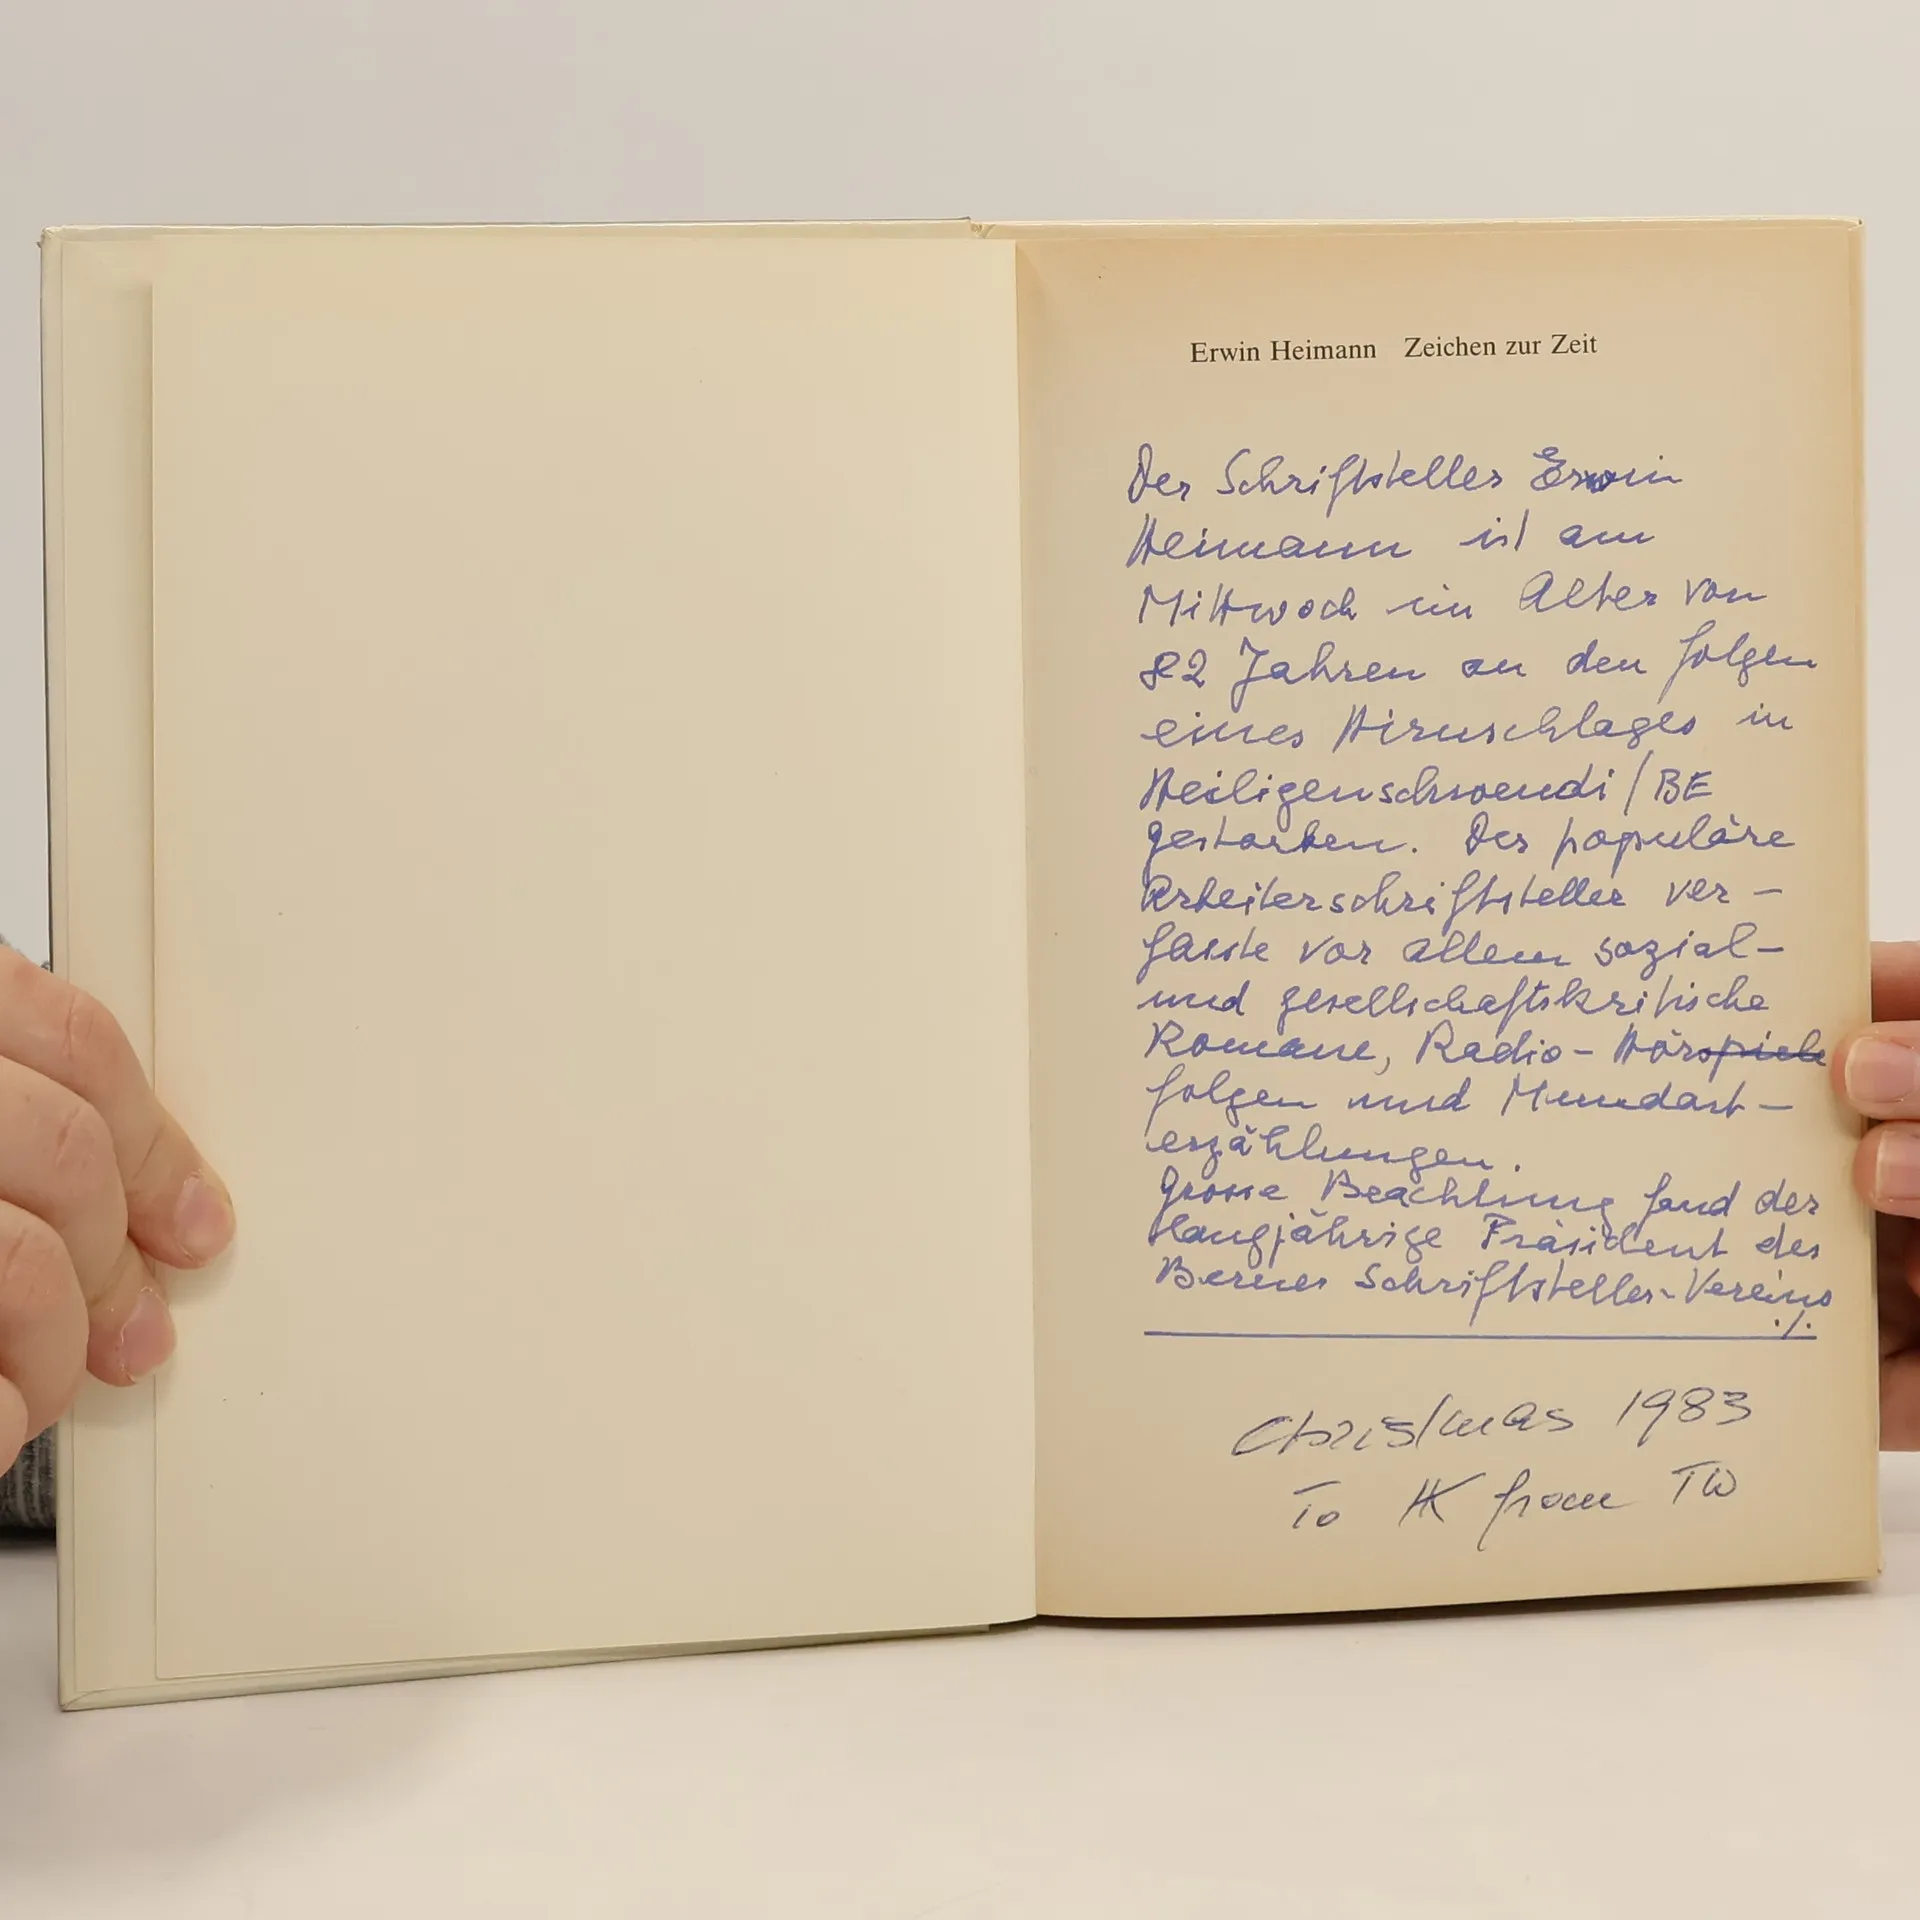 Erwin Heimann Zeichen zur Zeit
Der Schriftsteller Erwin
Heimann ist am
Mittwoch im Alter von
82 Jahren an den Folgen
eines Hirnschlages in
Heiligenschwendi/BE
gestorben. Der populäre
Arbeiterschriftsteller ver-
fasste vor allem sozial-
und gesellschaftskritische
Romane, Radio-Hörspiele
folgen und Mundart-
erzählungen.
Grosse Beachtung fand der
langjährige Präsident des
Berner Schriftsteller-Vereins
./.
Christmas 1983
To HK from TW